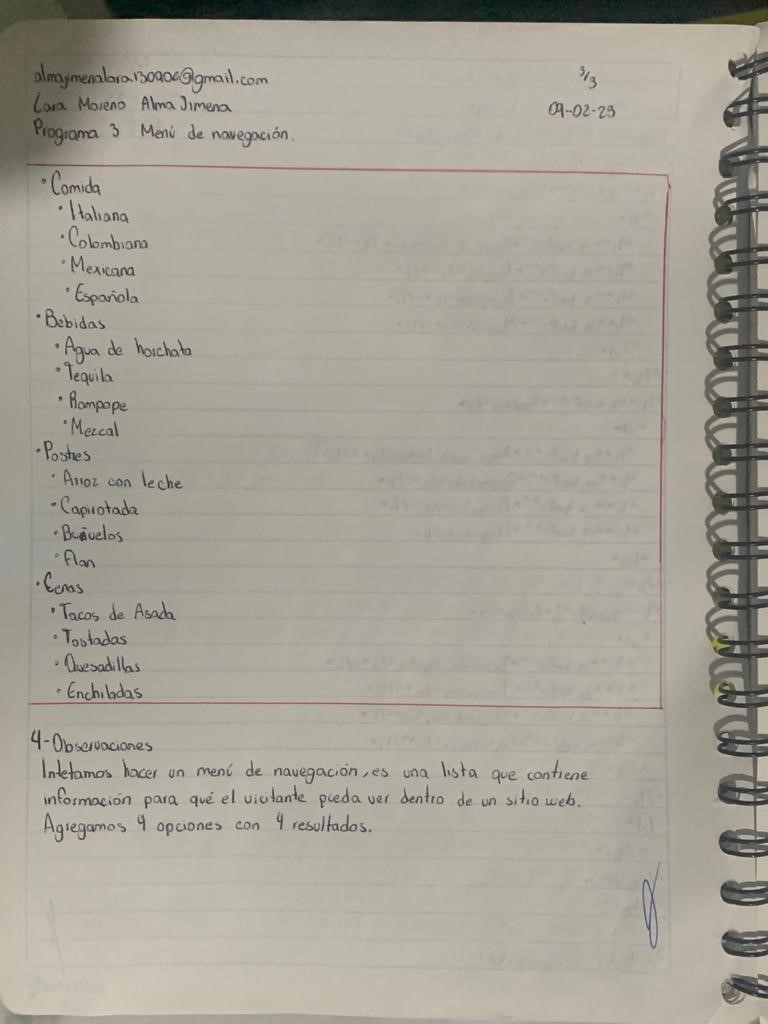 almajimenalara130906@gmail.com
3/3
Lara Moreno Alma Jimena
09-02-23
Programa 3 Menú de navegación.
• Comida
• Italiana
• Colombiana
• Mexicana
• Española
• Bebidas
• Agua de horchata
• Tequila
• Rompope
• Mezcal
• Postres
• Arroz con leche
• Capirotada
• Buñuelos
• Flan
• Cenas
• Tacos de Asada
• Tostadas
• Quesadillas
• Enchiladas
4-Observaciones
Intetamos hacer un menú de navegación, es una lista que contiene
información para qué el vicitante pueda ver dentro de un sitio web.
Agregamos 4 opciones con 4 resultados.